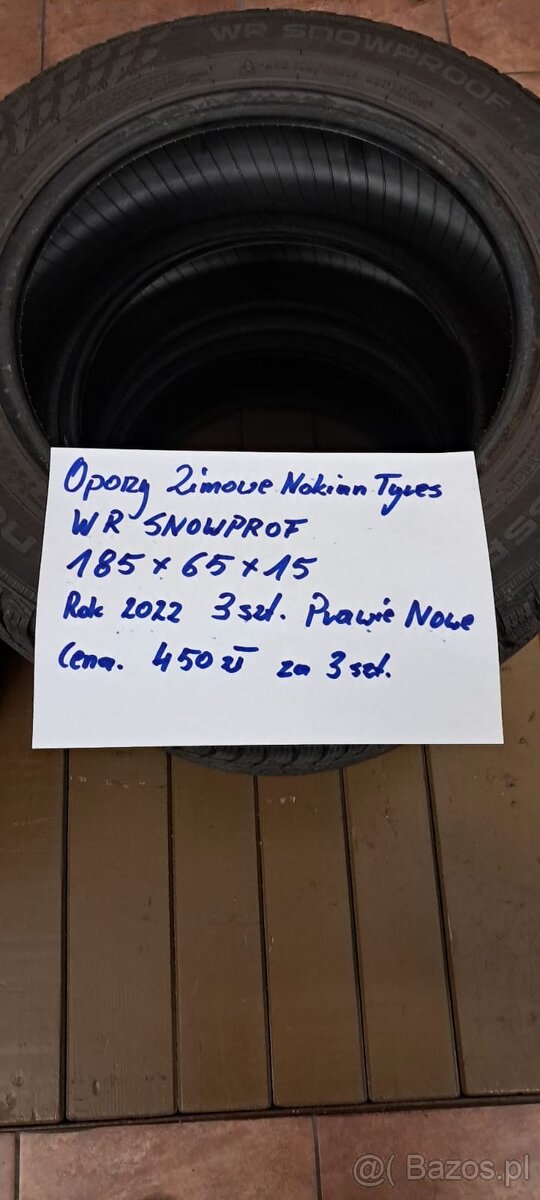 WR SNOWPROOF
Opony Zimowe Nokian Tyres
WR SNOWPROF
185 x 65 x 15
Rok 2022 3 szt. Prawie Nowe
Cena. 450 zł za 3 szt.
@( Bazos.pl